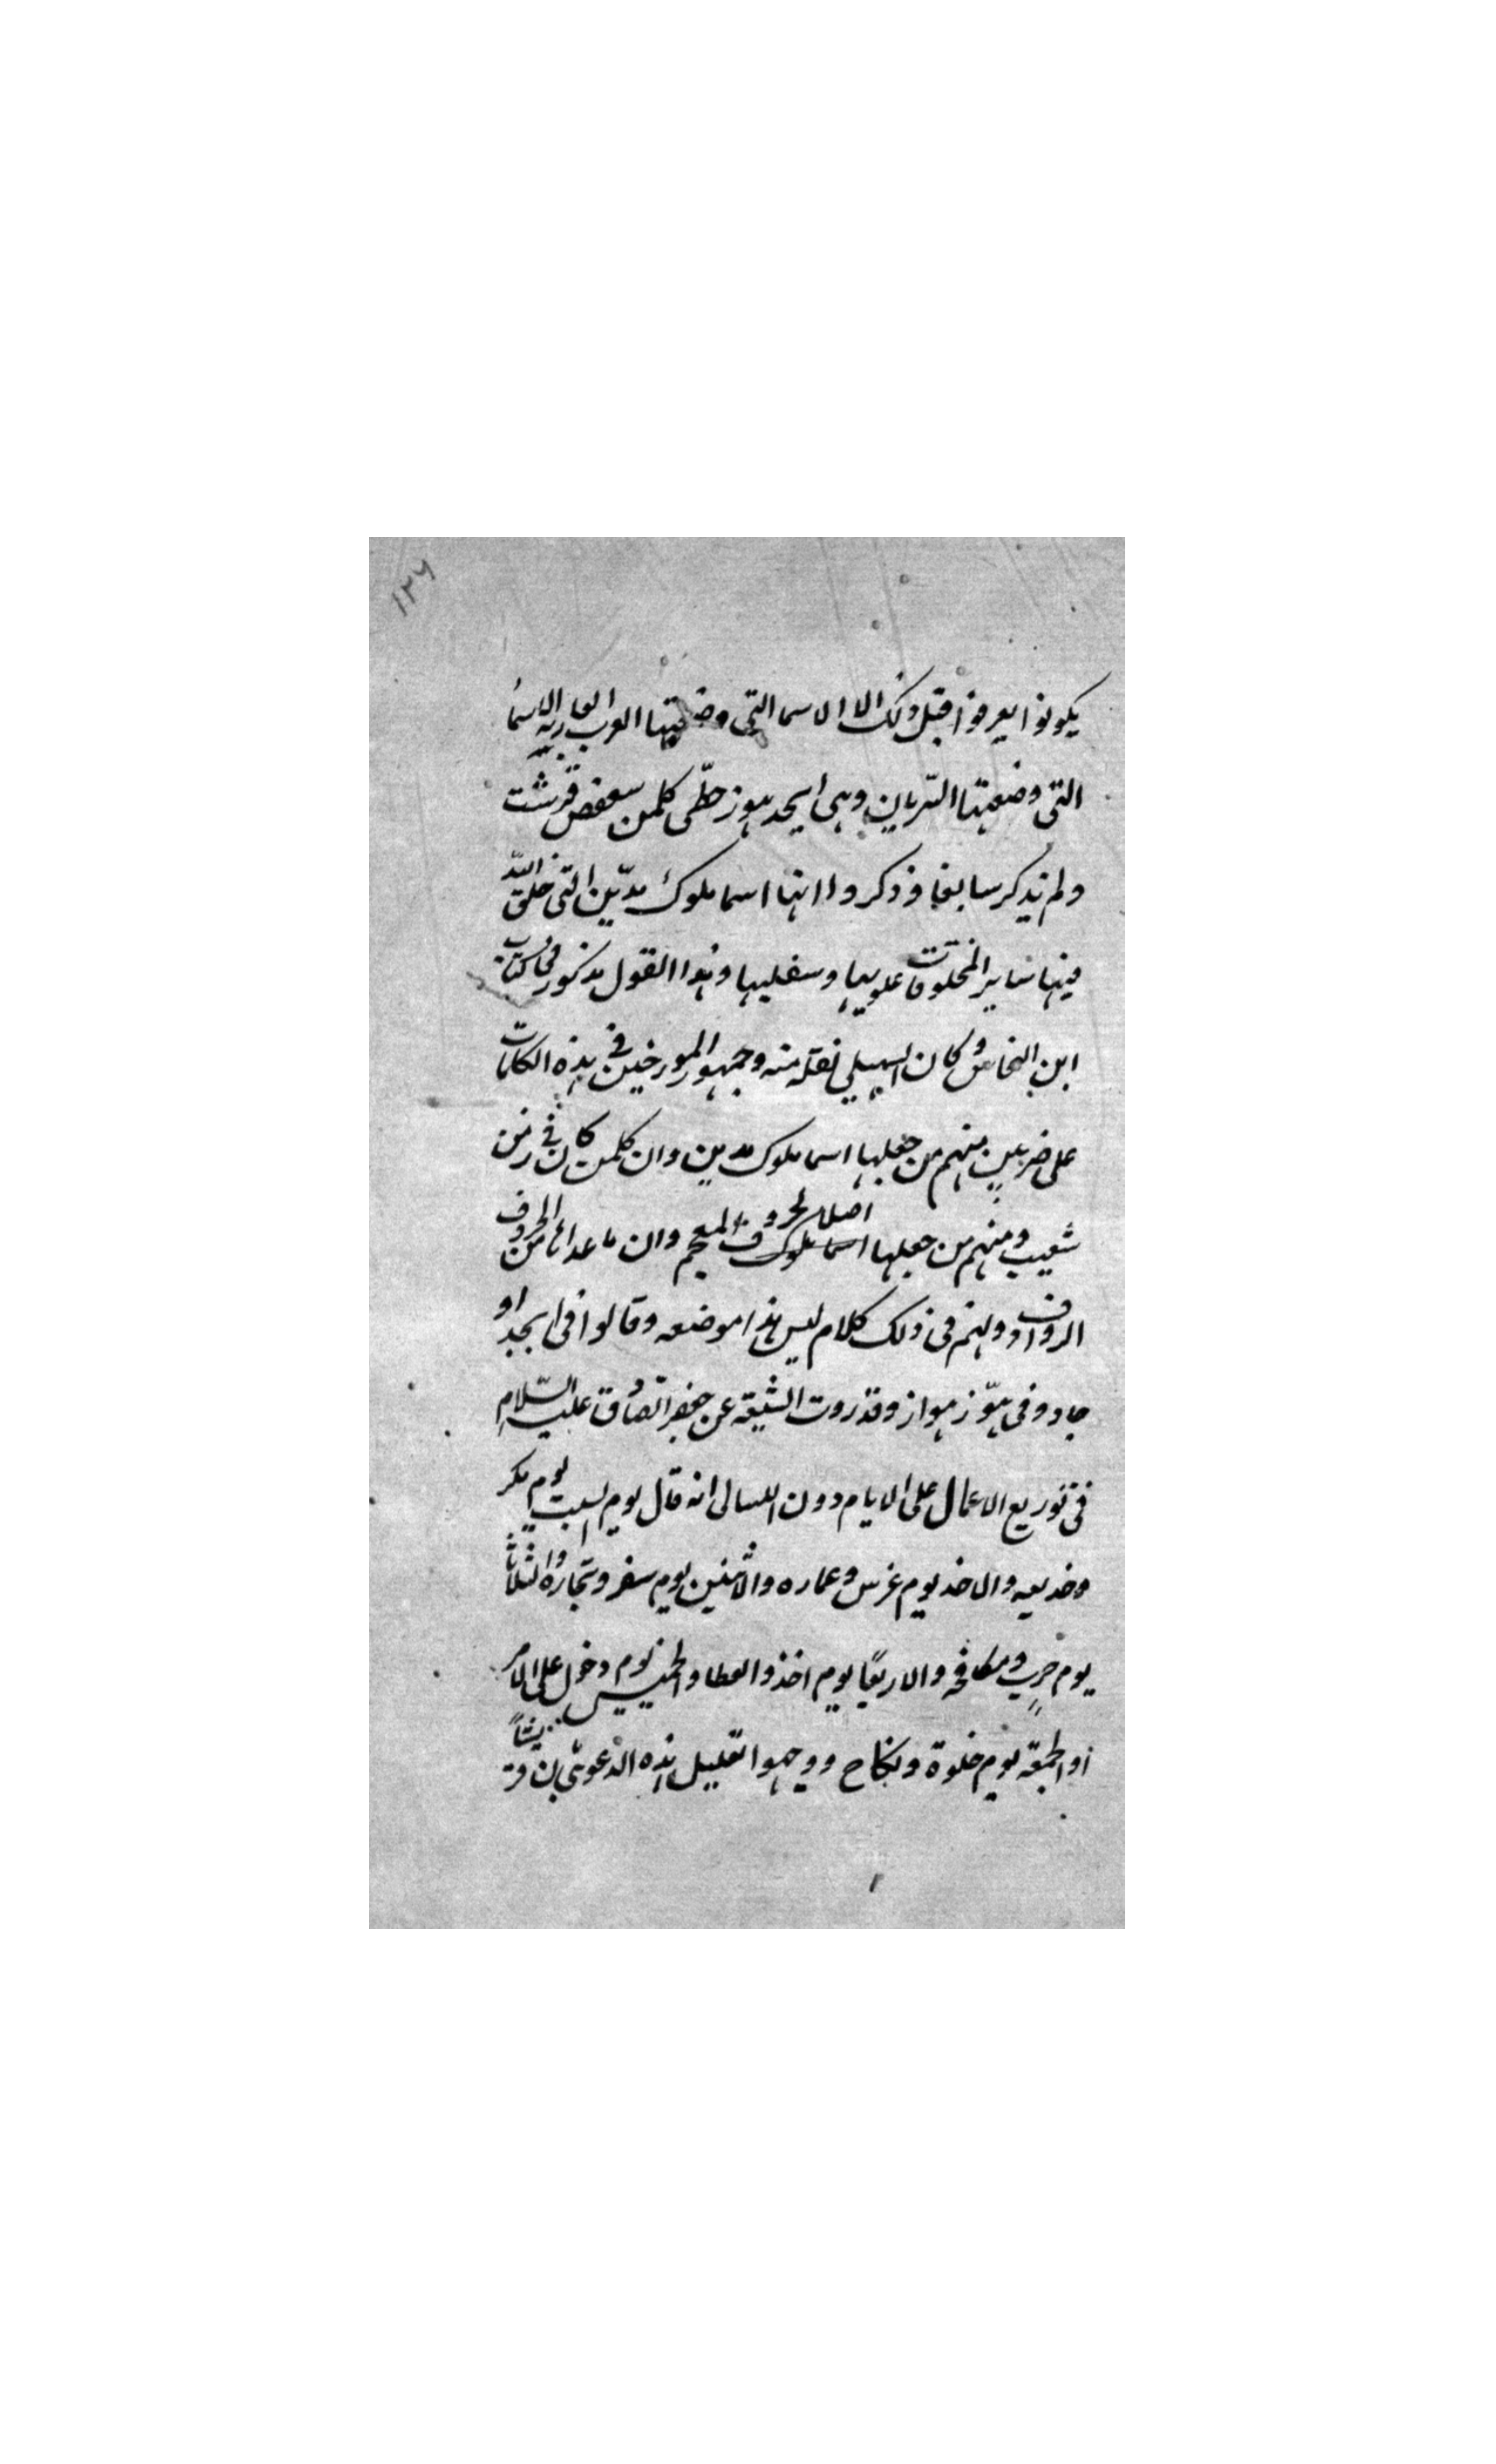 ١٢٦
يكونوا يعرفوا قبل ذلك الا الاسما التي وضعتها العرب العاربه الاسما
التي وضعتها السّريان وهى ابجد هوز حطّى كلمن سعفص قرشت
ولم يذكر سابعا وذكروا انها اسما ملوك مدين التي خلق الله
فيها ساير المخلوقات علويها وسفليها وهذا القول مذكور فى كتاب
ابن النحاس وكان السهيلي نقله منه وجمهور المورخين في هذه الكلمات
على ضربين منهم من جعلها اسما ملوك مدين وان كلمن كان في زمن
شعيب ومنهم من جعلها اسما ملوك اصلا لحروف المعجم وان ما عداها من الحروف
الروادف ولهم فى ذلك كلام ليس هذا موضعه وقالوا فى ابجد او
جاد وفى هوّز هواز وقد روت الشيعة عن جعفر الصادق عليه السّلام
فى توزيع الاعمال على الايام دون الليالى انه قال يوم السبت يوم مكر
وخديعه والاحد يوم غرس وعماره والاثنين يوم سفر وتجاره والثلاثا
يوم حرب ومكافحه والاربعا يوم اخذ والعطا والخميس يوم دخول على الامر
او الجمعة يوم خلوة ونكاح ووجهوا تعليل هذه الدعوى بان قريشاً